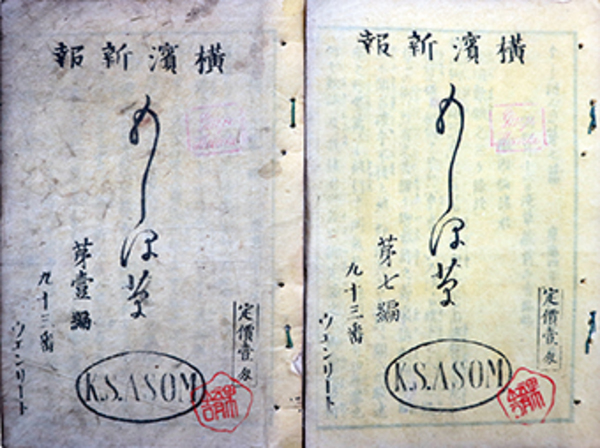 横濱新報
もしほ草
第壹編
九十三番
ウエンリート
定價壹匁
K.S.ASOM
横濱新報
もしほ草
第七編
九十三番
ウエンリート
定價壹匁
K.S.ASOM